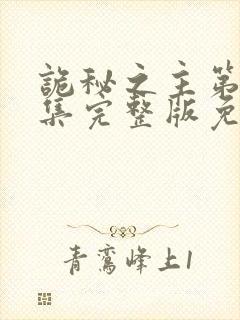 詭秘之主第
集完整版免
青鸾峰上1